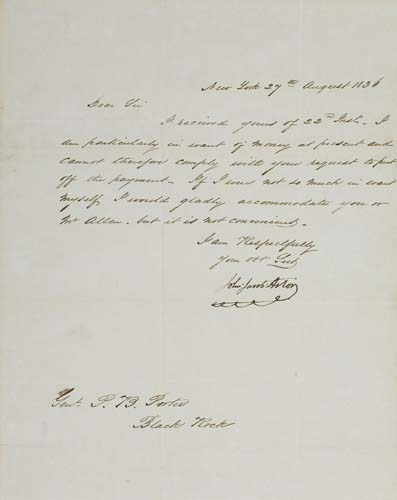 New York 27th August 1836
Dear Sir
I received yours of 22d Inst. I
am particularly in want of money at present and
cannot therefore comply with your request to put
off the payment - If I was not so much in want
myself, I would gladly accommodate you or
Mr Allen - but it is not convenient -
I am Respectfully
your obt Sert
John Jacob Astor
Genl. P. B. Porter
Black Rock